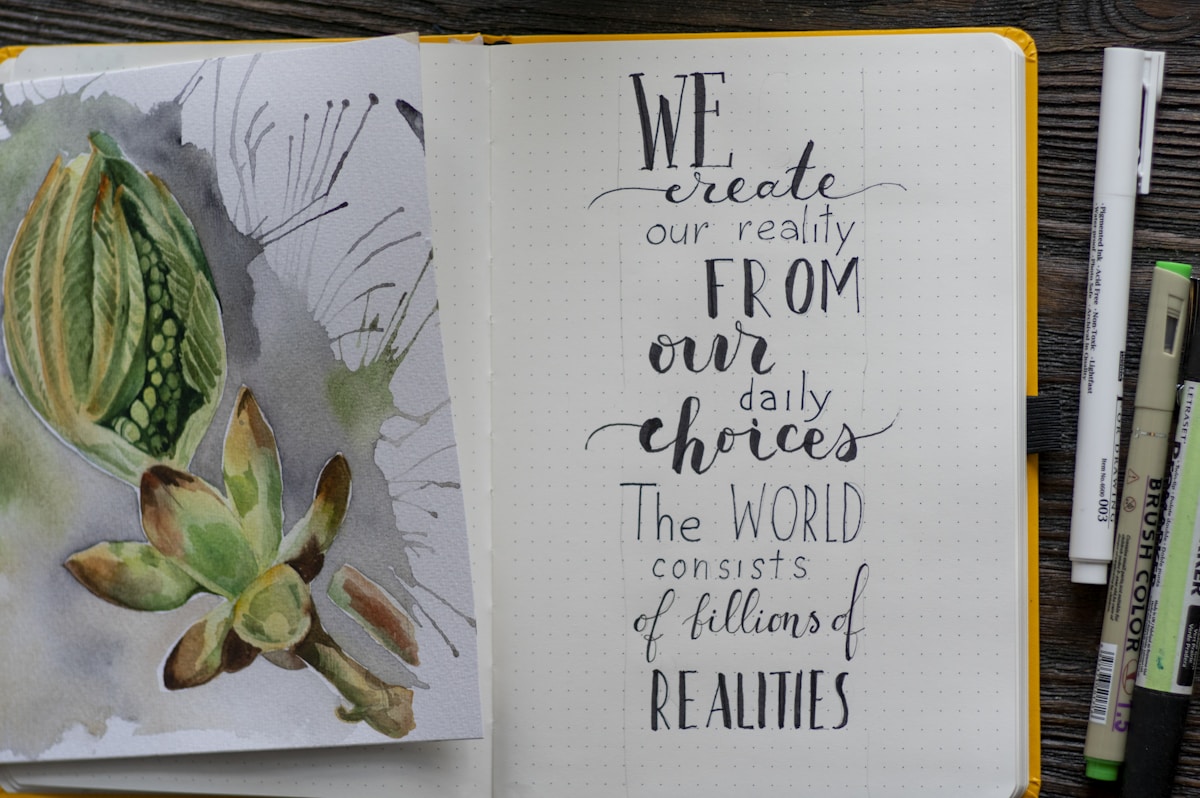 WE
create
our reality
FROM
our
daily
choices
The WORLD
consists
of billions of
REALITIES
Pigmented Ink · Acid Free · Non-Toxic · Lightfast
Water proof · Photo Safe
DRAWING
Item No.8500 003
BRUSH COLOR
LETRASET